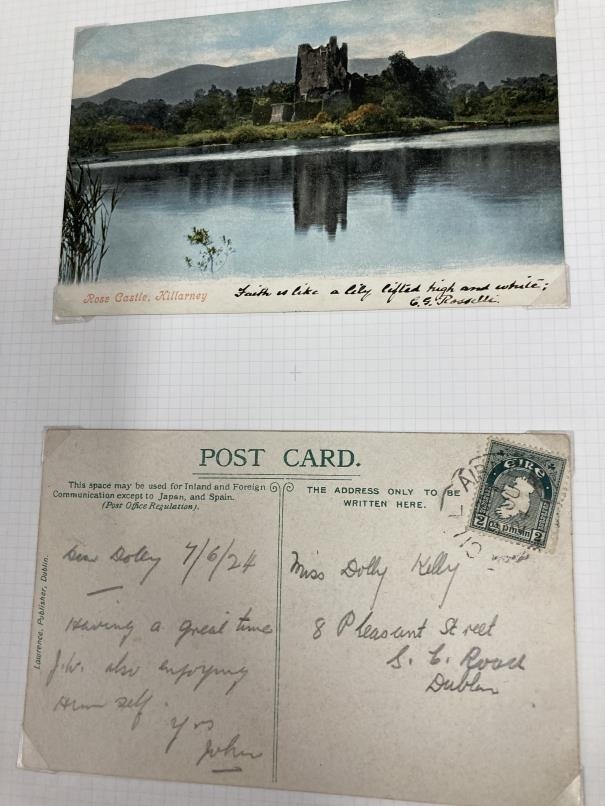 Ross Castle, Killarney
Faith is like a lily lifted high and white;
C.G. Rosselli.
POST CARD.
This space may be used for Inland and Foreign
Communication except to Japan, and Spain.
(Post Office Regulation).
THE ADDRESS ONLY TO BE
WRITTEN HERE.
ÉIRE
2 pinsin 2
Lawrence, Publisher, Dublin.
Dear Dolly 7/6/24
Having a great time
J.W. also enjoying
Him self.
Yrs
John
Miss Dolly Kelly
8 Pleasant Street
S. C. Road
Dublin